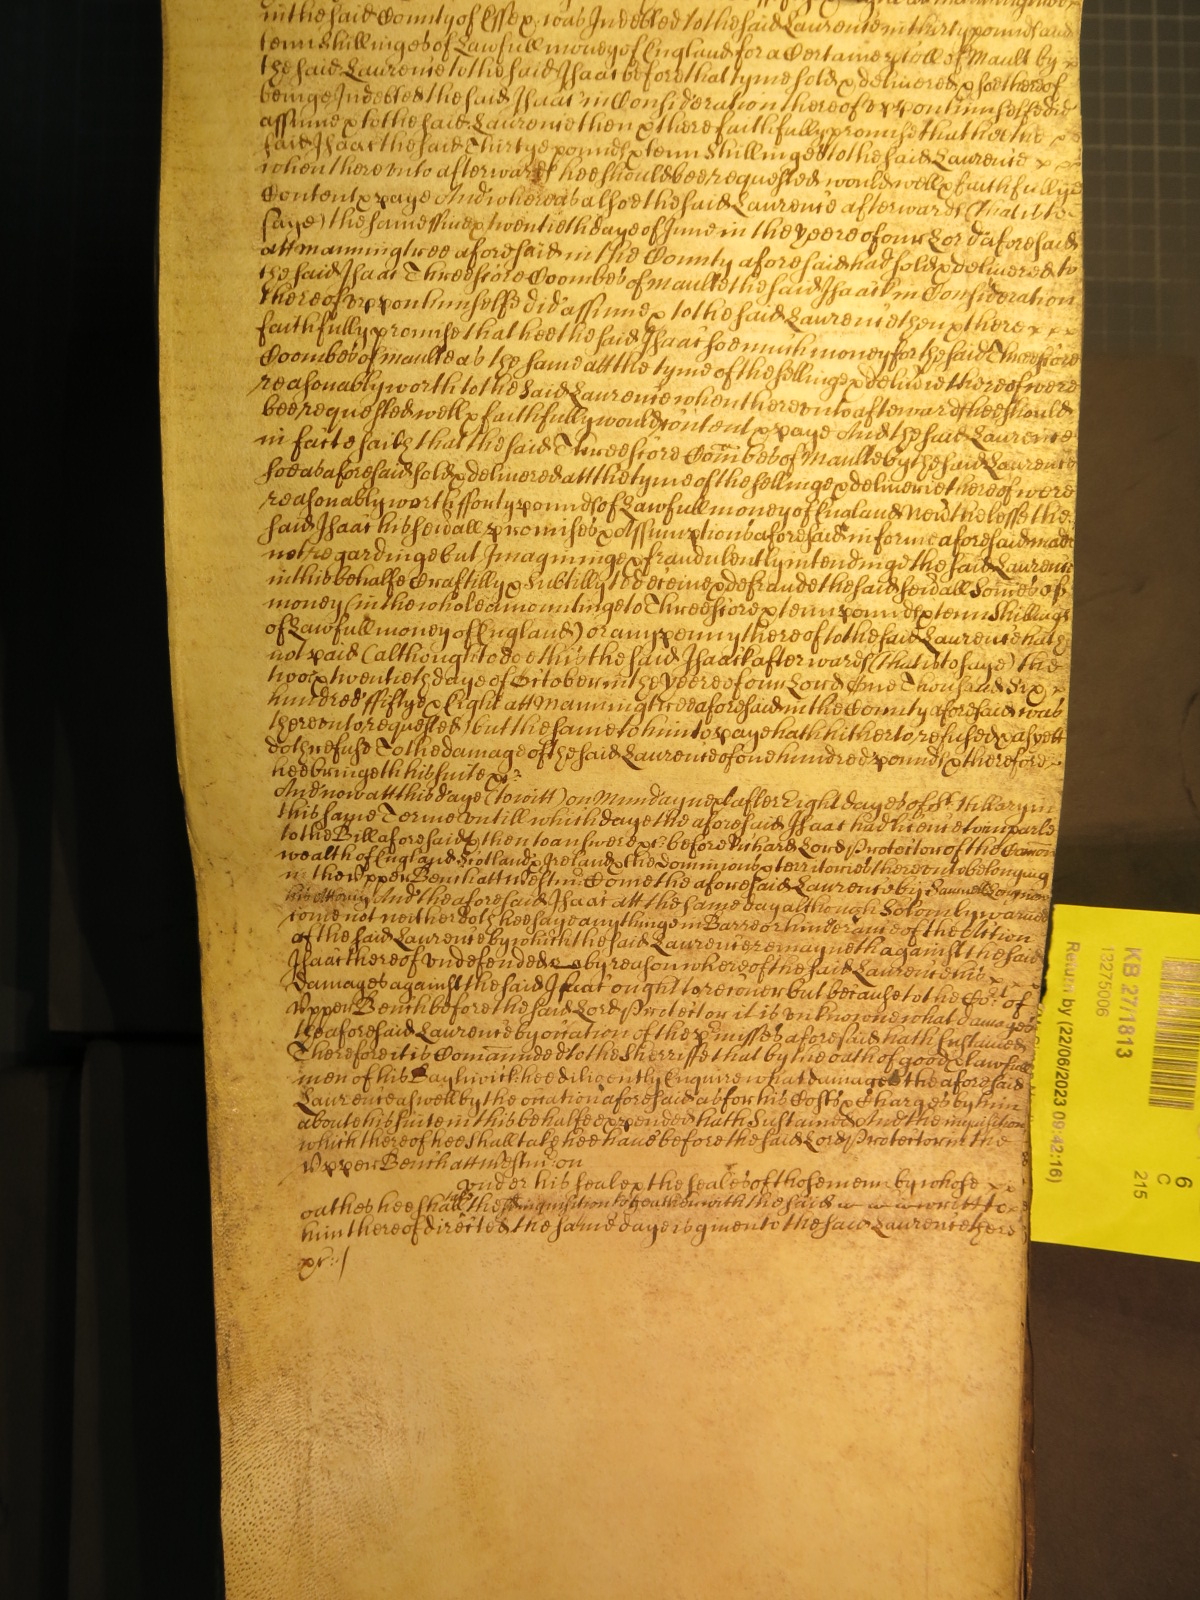 in the said County of Essex was Indebted to the said Laurence in thirty pounds and
tenn shillinges of Lawfull money of England for a Certaine of Mault by
the said Laurence to the said Isaac before that tyme sold & delivered & soe thereof
beinge Indebted the said Isaac in Consideration thereof uppon himselfe did
assume & to the said Laurence then & there faithfully promise that hee the
said Isaac the said Thirtye pounds & tenn shillinges to the said Laurence
when thereunto afterwards hee should bee requested would well & faithfullye
Content & paye And whereas alsoe the said Laurence afterwards (that is to
saye) the same ffive & twentieth daye of June in the yeere of our Lord aforesaid
att Manningtree aforesaid in the County aforesaid had sold & delivered to
the said Isaac Threescore Coombes of maulte the said Isaack in Consideration
thereof uppon himselfe did assume & to the said Laurence then & there
faithfully promise that hee the said Isaac soe much money for the said Threescore
Coombes of maulte as the same att the tyme of the sellinge & deliverie thereof were
reasonably worth to the said Laurence when thereunto afterwards hee should
bee requested well & faithfully would content & paye And the said Laurence
in facte saith that the said Threescore Coombes of Maulte by the said Laurence
soe as aforesaid sold & delivered att the tyme of the sellinge & deliverie thereof were
reasonably worth fforty pounds of Lawfull money of England Neverthelesse the
said Isaac his severall promises & Assumptions aforesaid in forme aforesaid made
not regardinge but Imagininge & fraudulently intendinge the said Laurence
in this behalfe Craftilly & Subtilly to deceive & defraude the said severall Somes of
money (in the whole amountinge to Threescore & tenn pounds & tenn shillings
of Lawfull money of England) or any penny thereof to the said Laurence hath
not paid (although to doe this the said Isaack afterwards (that is to saye) the
twoe & twentieth daye of October in the yeere of our Lord One Thousand Six
hundred ffifty & Eight att Manningtree aforesaid in the County aforesaid was
thereunto requested) but the same to him to paye hath hitherto refused & as yett
doth refuse To the damage of the said Laurence of one hundred pounds & therefore
hee bringeth his suite &c
And now att this daye (to witt) on Munday next after Eight dayes of St. Hillary in
this same Terme untill which daye the aforesaid Isaac had licence to imparle
to the Bill aforesaid & then to answere &c before Richard Lord Protector of the Common
wealth of England Scotland & Ireland & the dominions & territories thereunto belonging
in the Upper Bench att Westmr. Come the aforesaid Laurence by Samuell
his Attorny And the aforesaid Isaac att the same day although Solemly warned
come not neither doth hee saye any thinge in Barre or hinderance of the Action
of the said Laurence by which the said Laurence remayneth against the said
Isaac thereof undefended by reason whereof the said Laurence his
damages against the said Isaac ought to recover but because to the Cort. of
Upper Bench before the said Lord Protector it is unknowne what damages
the aforesaid Laurence by occation of the premisses aforesaid hath Sustained
Therefore it is Comannded to the Sherriffe that by the oath of good & lawfull
men of his Baylywick hee diligently Enquire what damages the aforesaid
Laurence aswell by the occation aforesaid as for his Costs & Charges by him
about his suite in this behalfe expended hath Sustained And the inquisition
which thereof hee shall take hee have before the said Lord Protector in the
Upper Bench att Westmr. on
under his seale & the seales of those menn by whose
oathes hee shall take the inquisition together with the said writt to
him thereof directed the same daye is given to the said Laurence there
&c
KB 27/1813
13275006
Return by (22/06/2023 09:42:16)
6
C
215